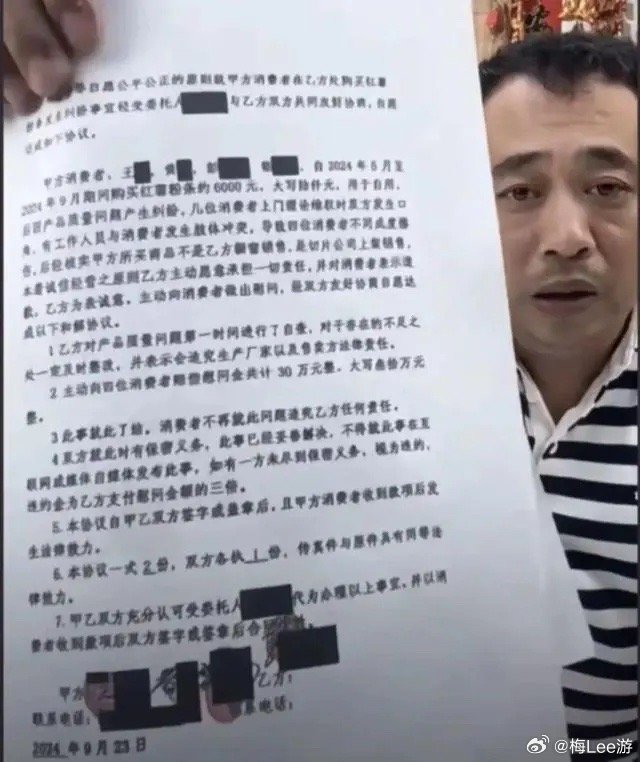 等自愿公平公正的原则就甲方消费者在乙方处购买红薯
粉条发生纠纷事宜经受委托人 与乙方双方共同友好协商,自愿
达成如下协议。
甲方消费者,王 黄 彭 自2024年5月至
2024年9月期间购买红薯粉条约6000元,大写陆仟元,用于自用,
后因产品质量问题产生纠纷,几位消费者上门理论维权时双方发生口
角,有工作人员与消费者发生肢体冲突,导致四位消费者不同成度擦
伤,后经核实甲方所买商品不是乙方橱窗销售,是切片公司上架销售,
本着诚信经营之原则乙方主动愿意承担一切责任,并对消费者表示道
歉,乙方为表诚意,主动向消费者做出慰问,经双方友好协商自愿达
成以下和解协议。
1乙方对产品质量问题第一时间进行了自查,对于存在的不足之
处一定及时整改,并表示会追究生产厂家以及售卖方法律责任。
2主动向四位消费者赔偿慰问金共计30万元整,大写叁拾万元
整。
3此事就此了结,消费者不再就此问题追究乙方任何责任。
4双方就此时有保密义务,此事已经妥善解决,不得就此事在互
联网或媒体自媒体发布此事,如有一方未尽到保密义务,视为违约,
违约金为乙方支付慰问金额的三倍。
5.本协议自甲乙双方签字或盖章后,且甲方消费者收到款项后发
生法律效力。
6.本协议一式2份,双方各执1份,传真件与原件具有同等法
律效力。
7.甲乙双方充分认可受委托人 代为办理以上事宜,并以消
费者收到款项后双方签字或签章后合
甲方 乙方:
联系电话: 系电话:
2024年9月23日
@梅Lee游